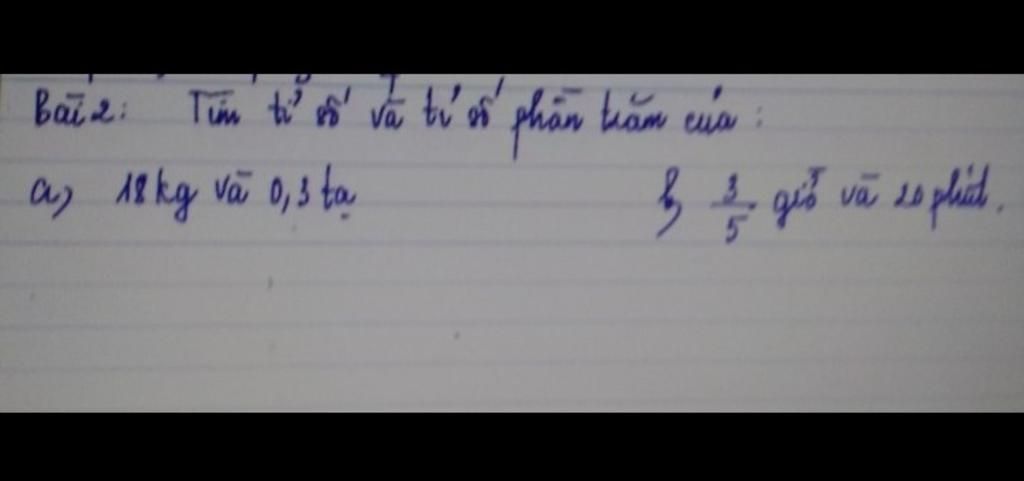 Bài 2: Tìm tỉ số và tỉ số phần trăm của :
a, 18 kg và 0,3 tạ b, 3/5 giờ và 20 phút.